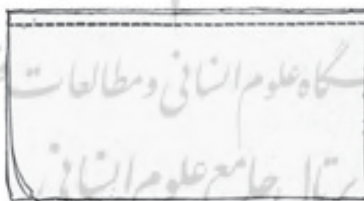 گاه علوم انسانی و مطالعات
پرتال جامع علوم انسانی